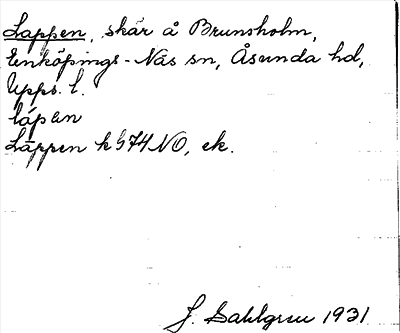 Lappen, skär å Brunsholm,
Enköpings-Näs sn, Åsunda hd,
Upps. l.
lápen
Lappen k 574 NO, ek.
J. Sahlgren 1931